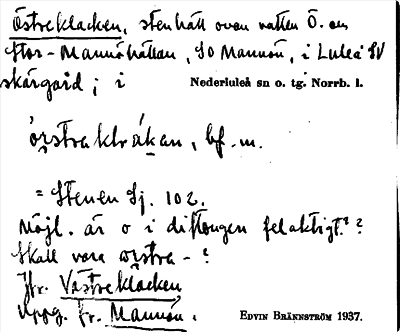 Östreklacken, stenhäll ovan vatten Ö. om
Stor-Mannöhällan, SO Mannön, i Luleå SV
skärgård; i Nederluleå sn o. tg. Norrb. l.
bf. m.
= Stenen Sj. 102.
Möjl. är o i diftongen felaktigt??
Skall vara
Jfr. Västreklacken
Uppg. fr. Mannön. EDVIN BRÄNNSTRÖM 1937.